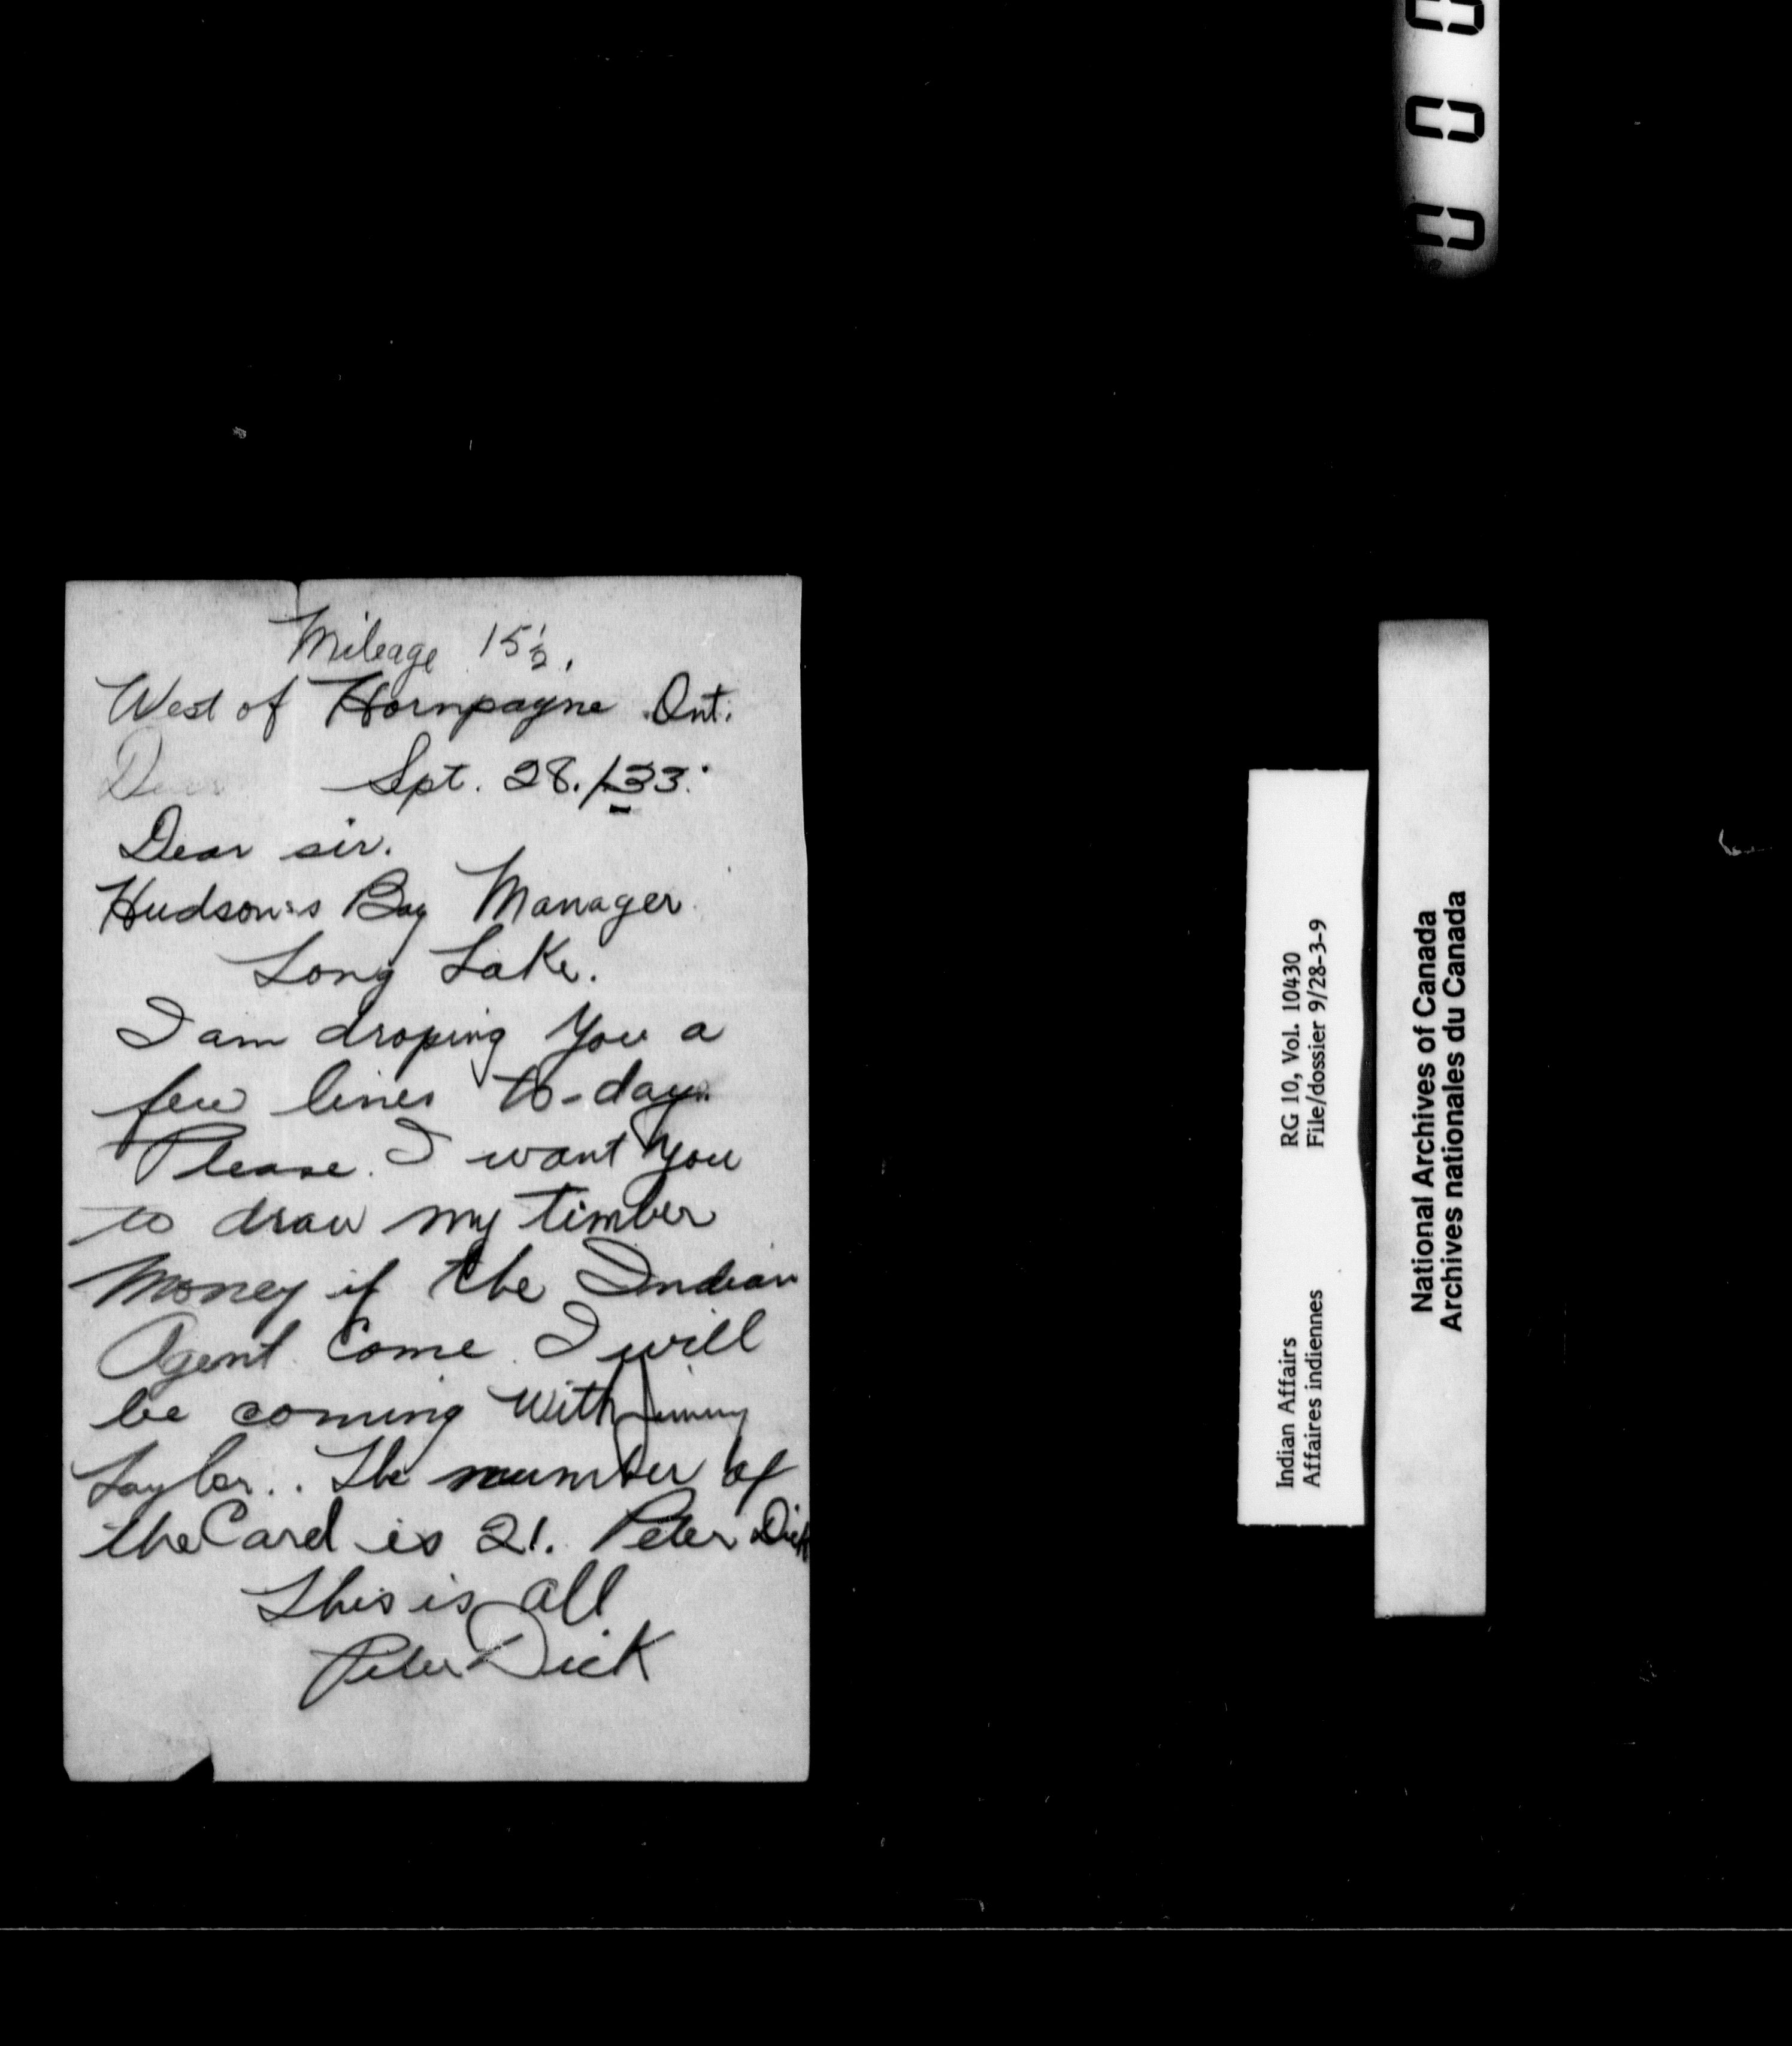 Mileage 15½.
West of Hornpayne Ont.
Dear
Spt. 28. / 33.
Dear sir.
Hudson's Bay Manager.
Long Lake.
I am droping you a
few lines to-day.
Please. I want you
to draw my timber
money if the Indian
Agent. Come. I will
be coming with Jimmy
Taylor.. The number of
the Card is 21. Peter Dick
This is all
Peter Dick
Indian Affairs RG 10, Vol. 10430
Affaires indiennes File/dossier 9/28-3-9
National Archives of Canada
Archives nationales du Canada